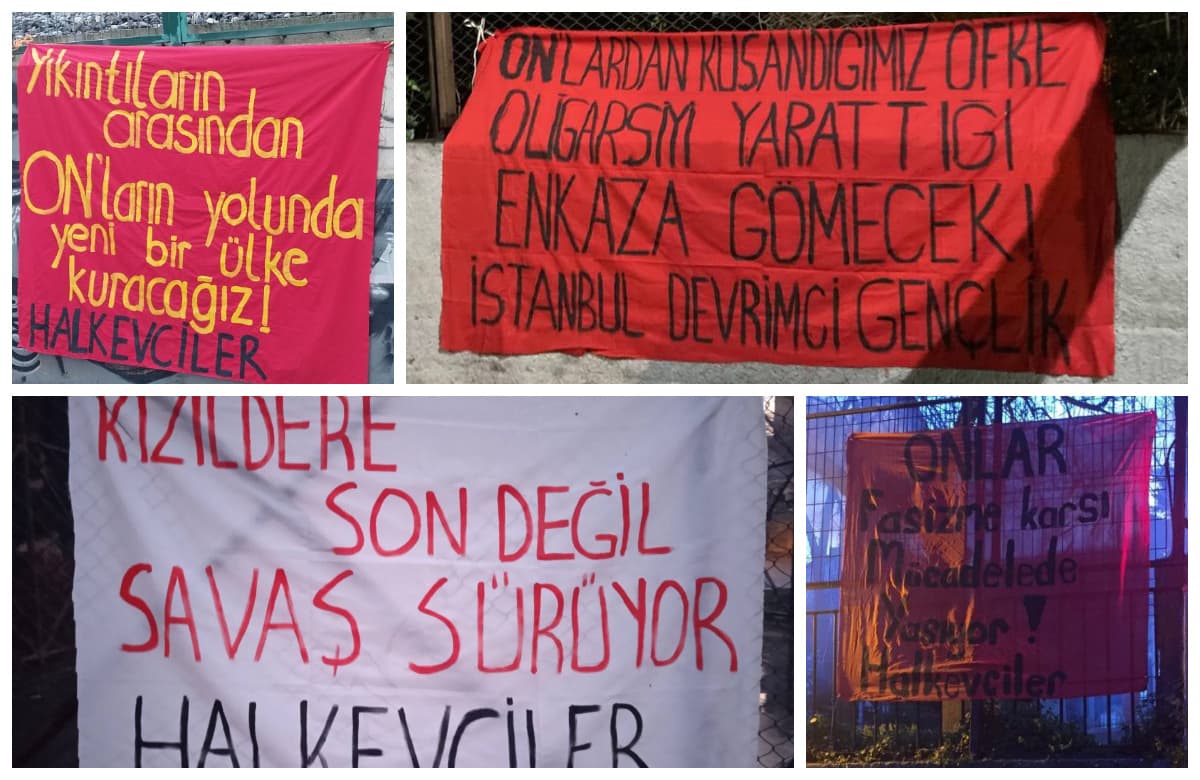 Yıkıntıların
arasından
ON'ların yolunda
yeni bir ülke
kuracağız!
HALKEVCİLER
ON'LARDAN KUŞANDIĞIMIZ ÖFKE
OLİGARŞİNİ YARATTIĞI
ENKAZA GÖMECEK!
İSTANBUL DEVRİMCİ GENÇLİK
KIZILDERE
SON DEĞİL
SAVAŞ SÜRÜYOR
HALKEVCİLER
ONLAR
Faşizme karşı
Mücadelede
Yaşıyor!
Halkevciler